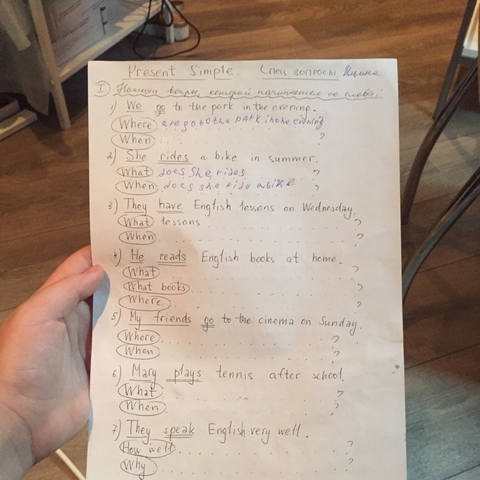 Present Simple. Спец вопросы
I Напиши вопрос, который начинается со слова:
1) We go to the park in the evening.
Where are go to the park in the evening
When . . . ?
2) She rides a bike in summer.
What does she rides ?
When does she ride a bike ?
3) They have English lessons on Wednesday.
What lessons . . . ?
When . . . ?
4) He reads English books at home.
What . . . ?
What books . . . ?
Where . . . ?
5) My friends go to the cinema on Sunday.
Where . . . ?
When . . . ?
6) Mary plays tennis after school.
What . . . ?
When . . . ?
7) They speak English very well.
How well . . . ?
Why . . . ?